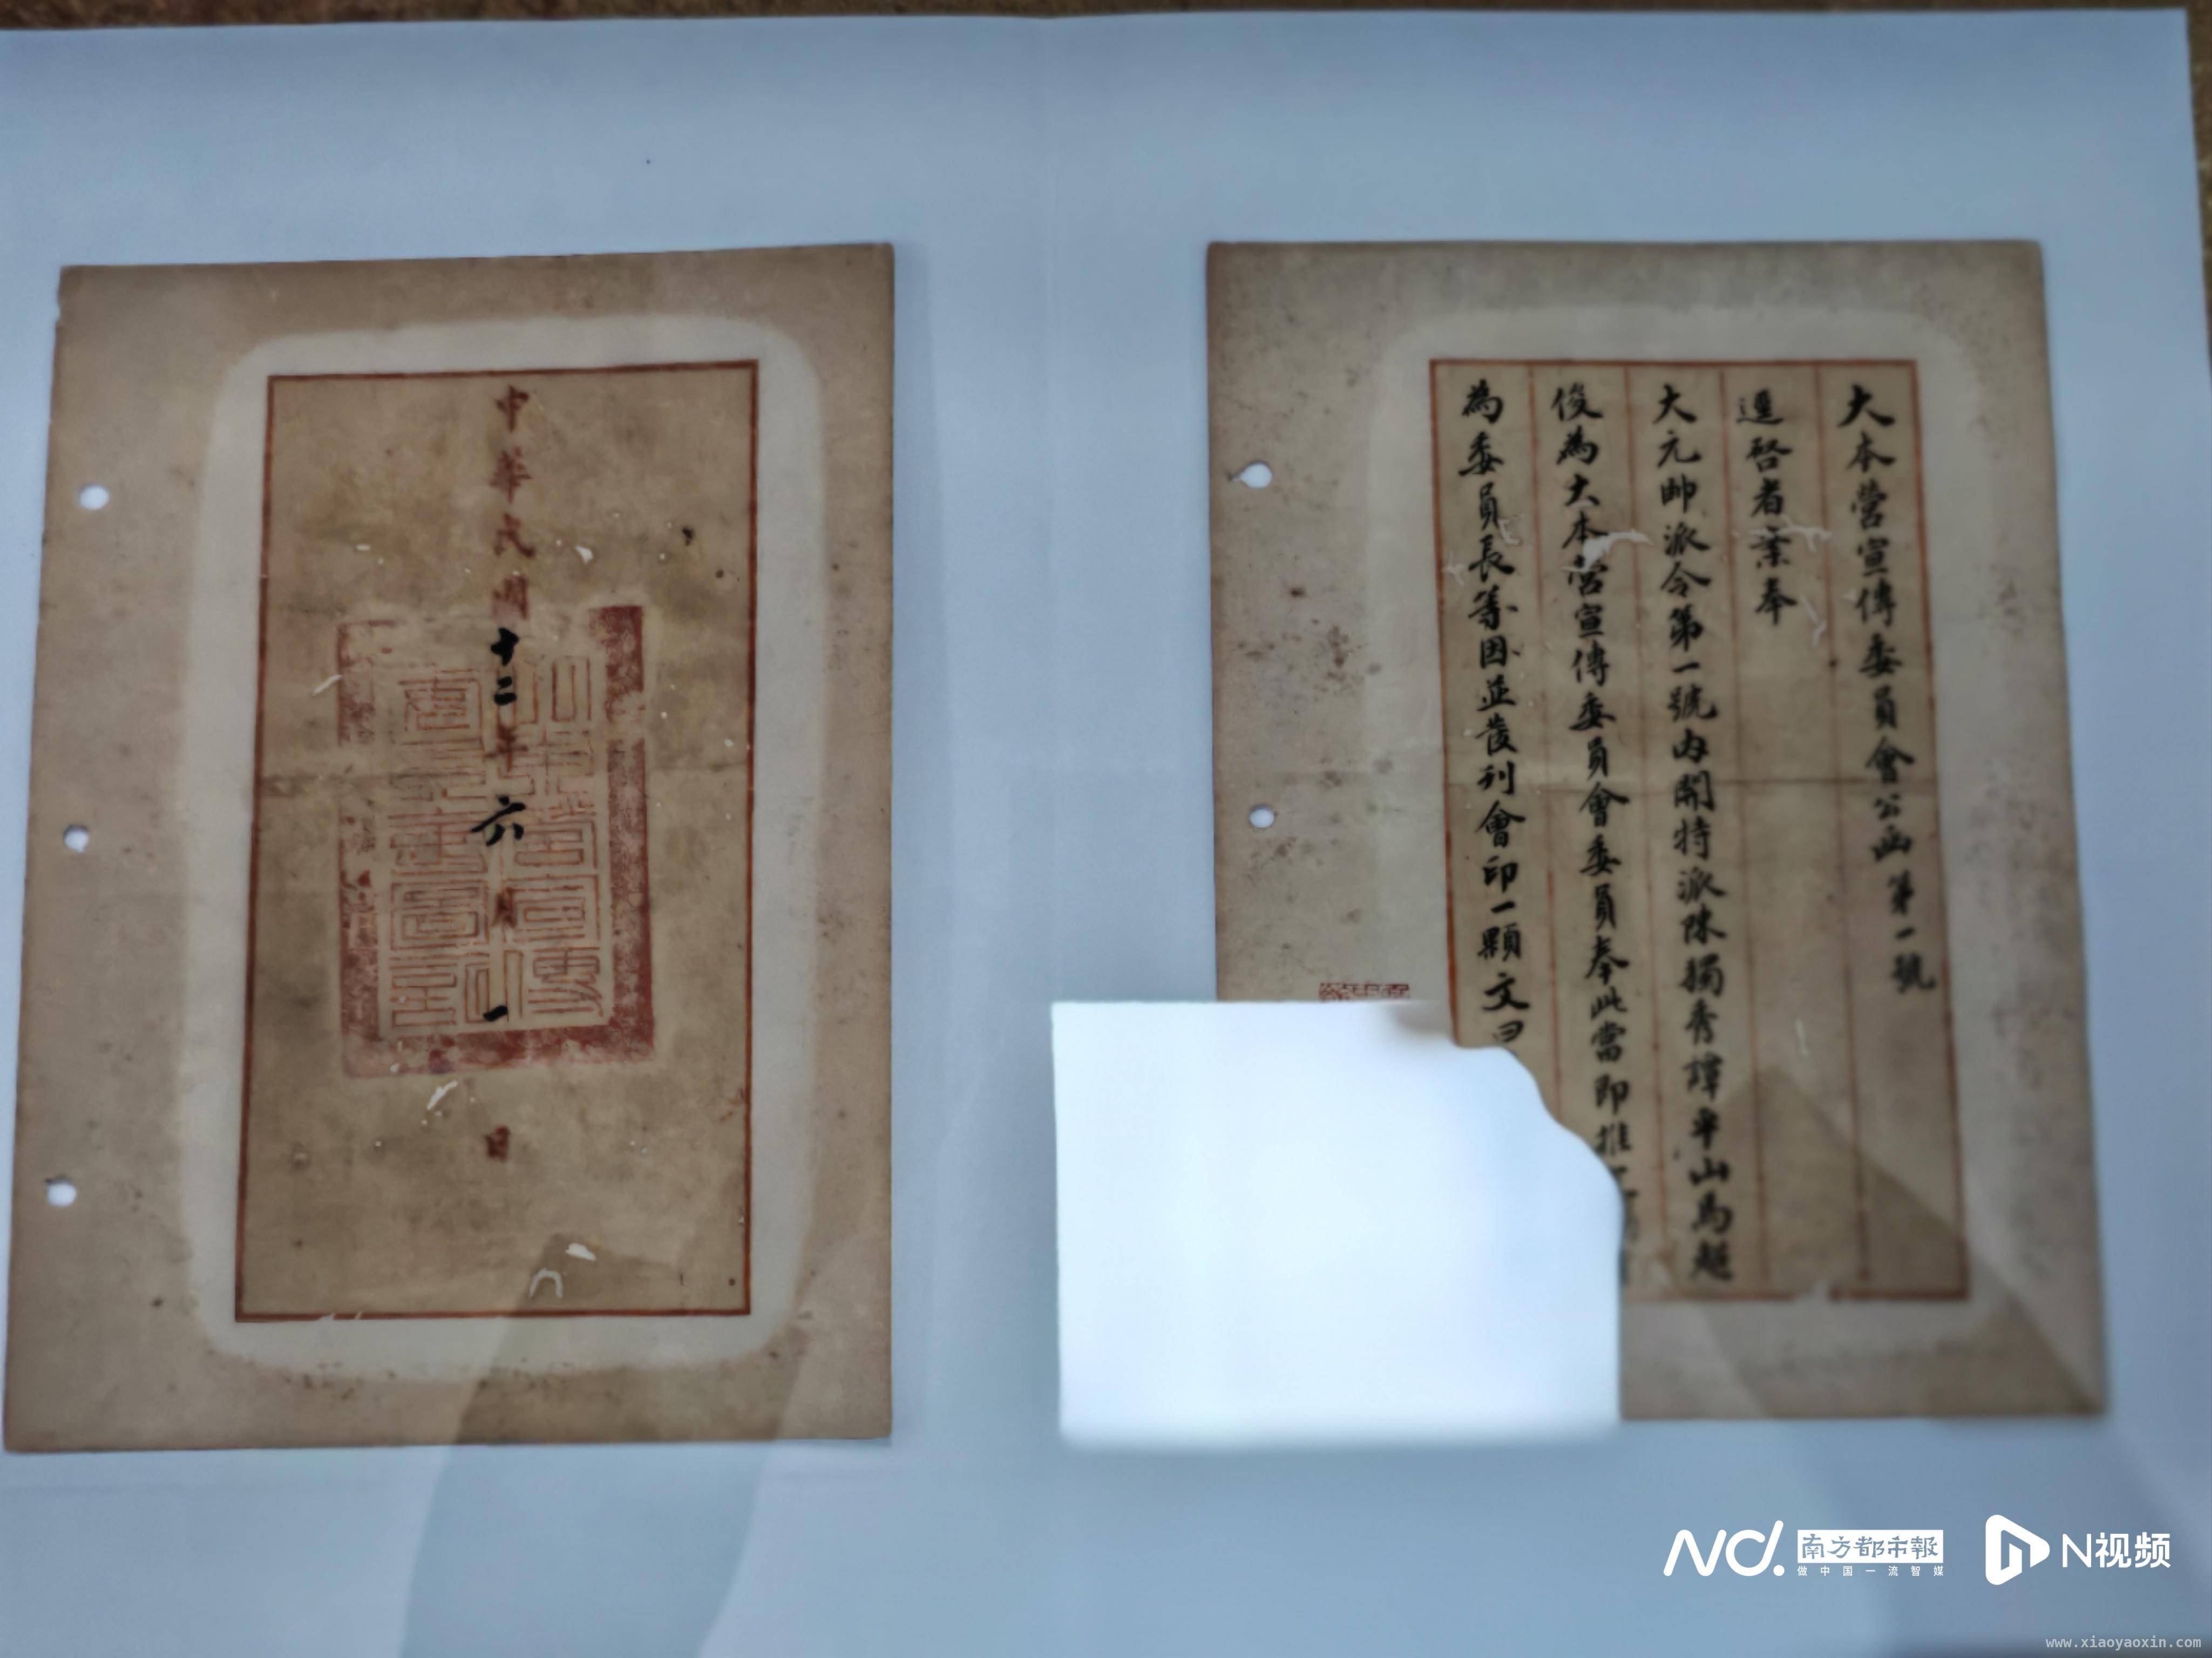 大本營宣傳委員會公函第一號
逕啓者案奉
大元帥派令第一號內開特派陳獨秀譚平山馬超
俊為大本營宣傳委員會委員奉此當即推
為委員長等因並發刊會印一顆文曰
中華民國十二年六月一日
南方都市報
做中国一流智媒
N视频
www.xiaoyaoxin.com